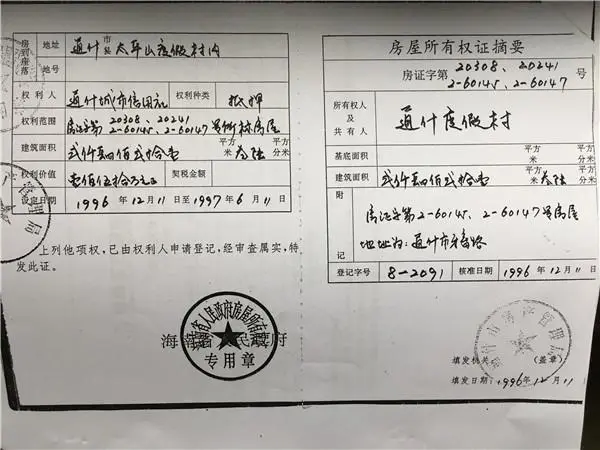 房屋座落
地址
通什市县太平山度假村内
地号
权利人
通什城市信用社
权利种类
抵押
权利范围
房证字第20308、20241
2-60145、2-60147号所标房屋
建筑面积
贰仟肆佰贰拾壹平方米叁陆平方分米
权利价值
壹佰伍拾万元正
契税金额
设定日期
1996年12月11日至1997年6月11日
上列他项权,已由权利人申请登记,经审查属实,特
发此证。
海南省人民政府
专用章
房屋所有权证摘要
房证字第20308、20241
2-60145、2-60147号
所有权人及
共有人
通什度假村
基底面积
平方米
平方分米
建筑面积
贰仟肆佰贰拾壹平方米叁陆平方分米
附记
房证字第2-60145、2-60147号房屋
地址为:通什市
登记字号
8-2091
核准日期
1996年12月11日
通什市房产管理局
填发机关
(盖章)
填发日期:1996年12月11